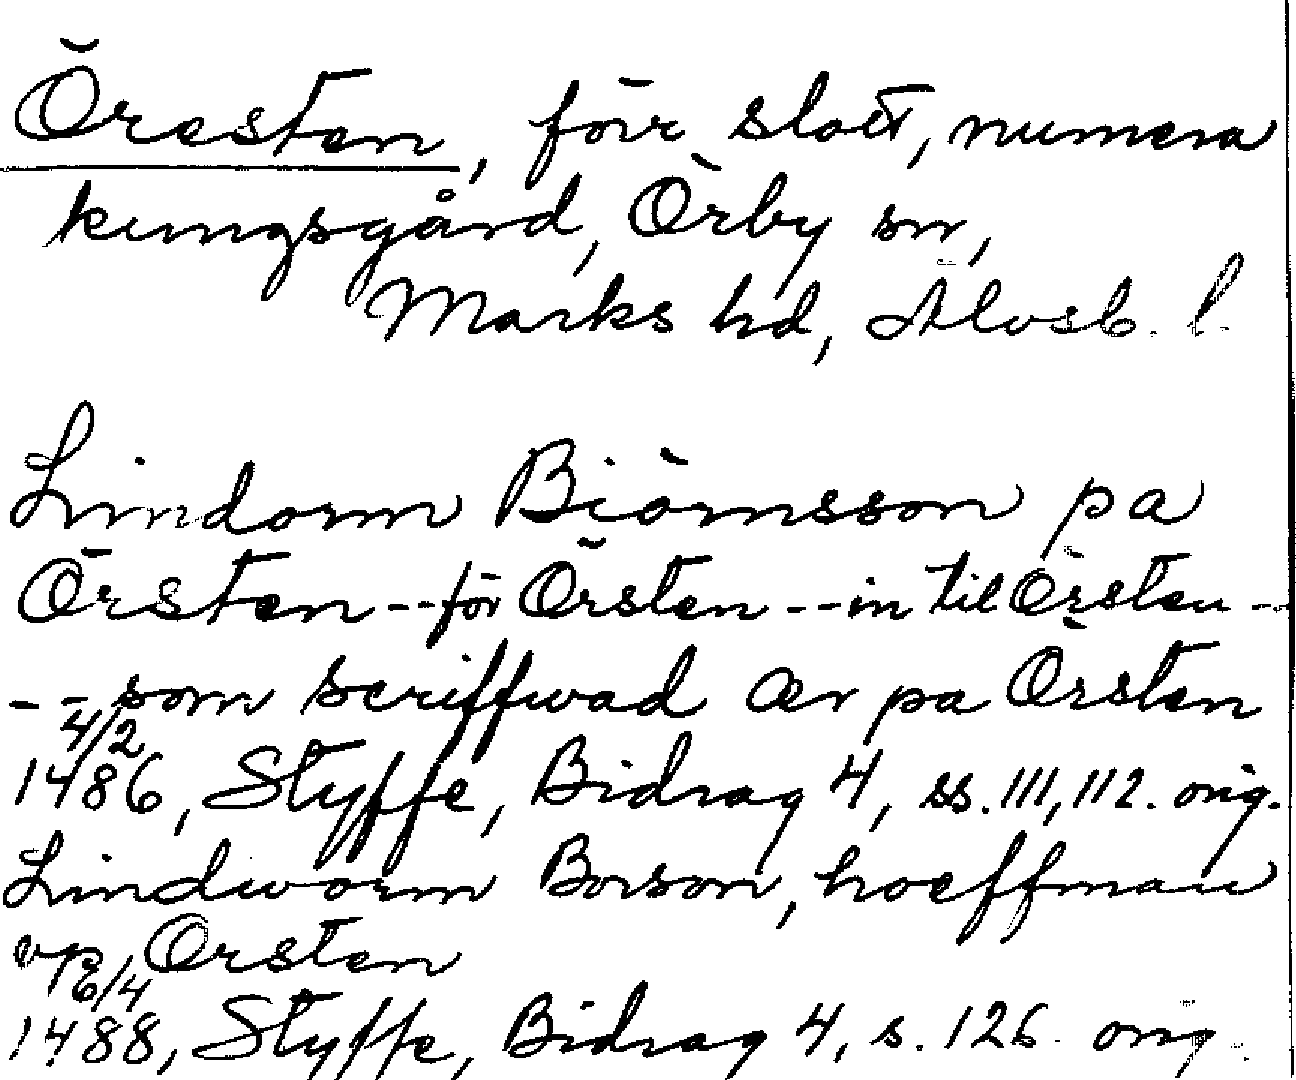 Öresten, förr slott, numera
kungsgård, Örby sn,
Marks hd, Älvsb. l.
Lindorm Biörnsson pa
Örsten -- för Örsten -- in til Örsten --
-- som scriffwad ær pa Örsten
4/2
1486, Styffe, Bidrag 4, ss. 111, 112. orig.
Lindworm Borson, hoeffman
vp Orsten
6/4
1488, Styffe, Bidrag 4, s. 126. orig.